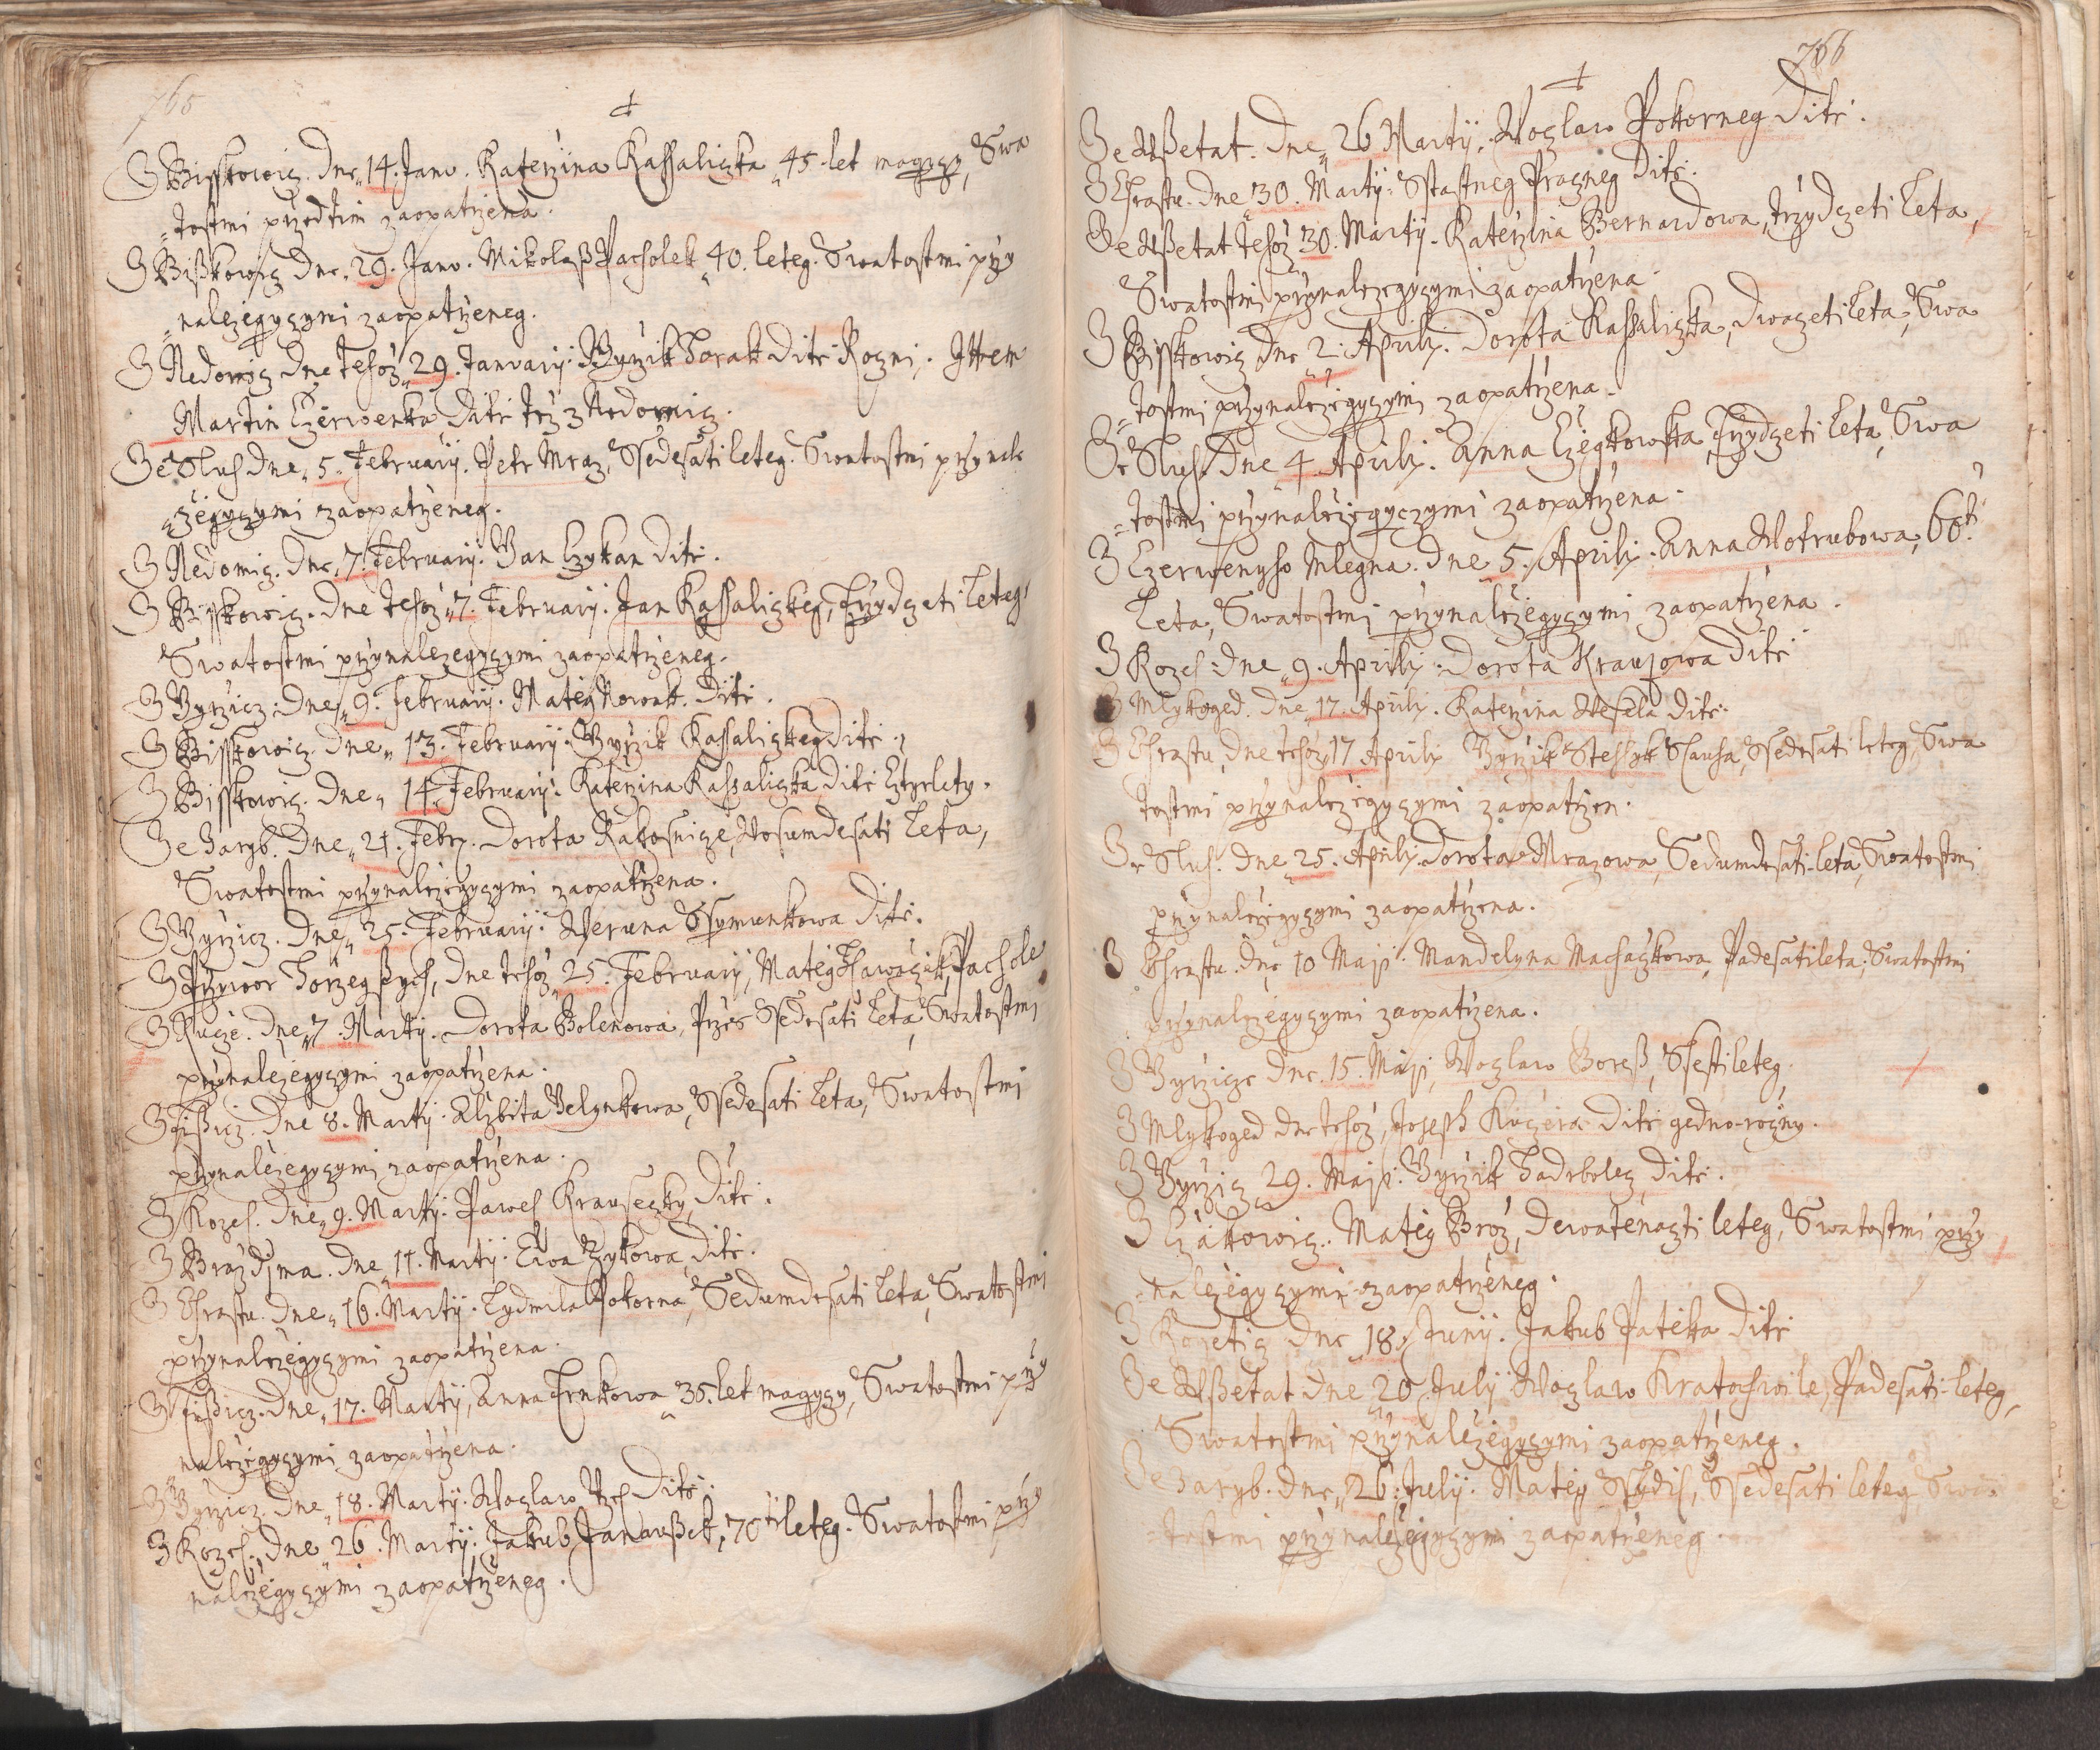 765
Z Bisskowicz. Dne 14. Janv. Katerzina Kassaliczka 45 let magyczy, Swa
=tostmi przedtim zaopatrzena.
Z Bißkowicz dne 29. Janv. Mikolaß Pacholek 40. leteg. Swatostmi przy
=nalezegyczymi zaopatrzeneg.
Z Nedomicz dne tehoz 29. Januarij. Gyrzik Horak Dite Rozni. Ittem
Martin Czerwenka Dite tez z Nedomicz.
Ze Sluh dne 5. Februarij. Petr Mraz, Ssedesati leteg. Swatostmi przynale
=zegyczymi zaopatrzeneg.
Z Nedomicz. dne 7. Februarij. Jan Czykan dite.
Z Bisskowicz. dne tehoz 7. Februarij. Jan Kassaliczkeg, Trzydczeti leteg,
Swatostmi przynalezegyczymi zaopatrzeneg.
Z Gyrzicz. dne 9. Februarij. Mateg Nowak. dite.
Z Bisskowicz. dne 13. Februarij. Gyrzik Kassaliczkeg dite.
Z Bisskowicz. dne 14. Februarij. Katerzina Kassaliczka dite Cztyrlety.
Ze Zaryb. dne 21. Febr. Dorota Rakosnicze, Wosumdesati Leta,
Swatostmi przynalezegyczymi zaopatrzena.
Z Gyrzicz. dne 25. Februarij. Weruna Ssymunkowa dite.
Z Przywor Horzegssych, dne tehoz 25. Februarij, Mateg Hawaczik, Pachole
Z Kucze. dne 7. Martij. Dorota Bolenowa, Przes Ssedesati Leta, Swatostmi
przynalezegyczymi zaopatrzena.
Z Tissicz. dne 8. Martij. Alzbita Jelynkowa, Ssedesati Leta, Swatostmi
przynalezegyczymi zaopatrzena.
Z Kozel. dne 9. Martij. Pawel Krauseczky, dite.
Z Brazdima. dne 11. Martij. Ewa Czykowa dite.
Z Chrastu. dne 16. Martij. Lydmila Pokorna, Sedumdesati Leta, Swatostmi
przynalezegyczymi zaopatrzena.
Z Tissicz. dne 17. Martij, Anna Trnkowa 35. let magyczy, Swatostmi przy
nalezegyczymi zaopatrzena.
Z Gyrzicz. dne 18. Martij. Waczlaw dite.
Z Kozel. dne 26. Martij. Jakub Janaußek, 70ti leteg. Swatostmi przy
nalezegyczymi zaopatrzeneg.
766
Ze Wßetat. dne 26 Martij. Waczlaw Pokorneg Dite.
Z Chrastu. dne 30. Martij. Sstastneg Prazneg Dite.
Ze Wßetat tehoz 30. Martij. Katerzina Bernardowa, trzydczeti Leta,
Swatostmi przynalezegyczymi zaopatrzena.
Z Bisskowicz dne 2. Aprilj. Dorota Kassaliczka, Dwaczeti Leta, Swa
=tostmi przynalezegyczymi zaopatrzena.
Ze Sluh. dne 4. Aprilj. Anna Czegkowska, Trzydczeti Leta, Swa
=tostmi przynalezegyczymi zaopatrzena.
Z Czerwenyho Mlegna. dne 5. Aprilj. Anna Wotrubowa, 60ti
Leta, Swatostmi przynalezegyczymi zaopatrzena.
Z Kozel. dne 9. Aprilj. Dorota Krauzowa Dite
Z Mlykoged. dne 17. Aprilj. Katerzina Wesela dite.
Z Chrastu, dne tehoz 17 Aprilj Gyrzik Stehlyk Slauha, Ssedesati leteg, Swa
tostmi przynalezegyczymi zaopatrzen.
Ze Sluh. dne 25. Aprilj. Dorota Mrazowa, Sedumdesati leta, Swatostmi
przynalezegyczymi zaopatrzena.
Z Chrastu. dne 10 Maji. Mandelyna Machaczkowa, Padesati leta, Swatostmi
przynalezegyczymi zaopatrzena.
Z Gyrzicze dne 15. Maji, Waczlaw Boreß, Ssesti leteg,
Z Mlykoged dne tehoz, Joseph Kuczera Dite gedno-rozny.
Z Gyrzicz 29. Maji. Gyrzik Hadrbolcz dite.
Z Czakowicz. Mateg Broz, Dewatenaczti leteg, Swatostmi przy
=nalezegyczymi zaopatrzeneg.
Z Kopetiz dne 18. Junij. Jakub Pateka Dite
Ze Wßetat dne 20 Julij Waczlaw Kratochwile, Padesati leteg,
Swatostmi przynalezegyczymi zaopatrzeneg.
Ze Zaryb. dne 26. Julij. Mateg Ssedesati leteg Swa=
=tostmi przynalezegyczymi zaopatrzeneg.